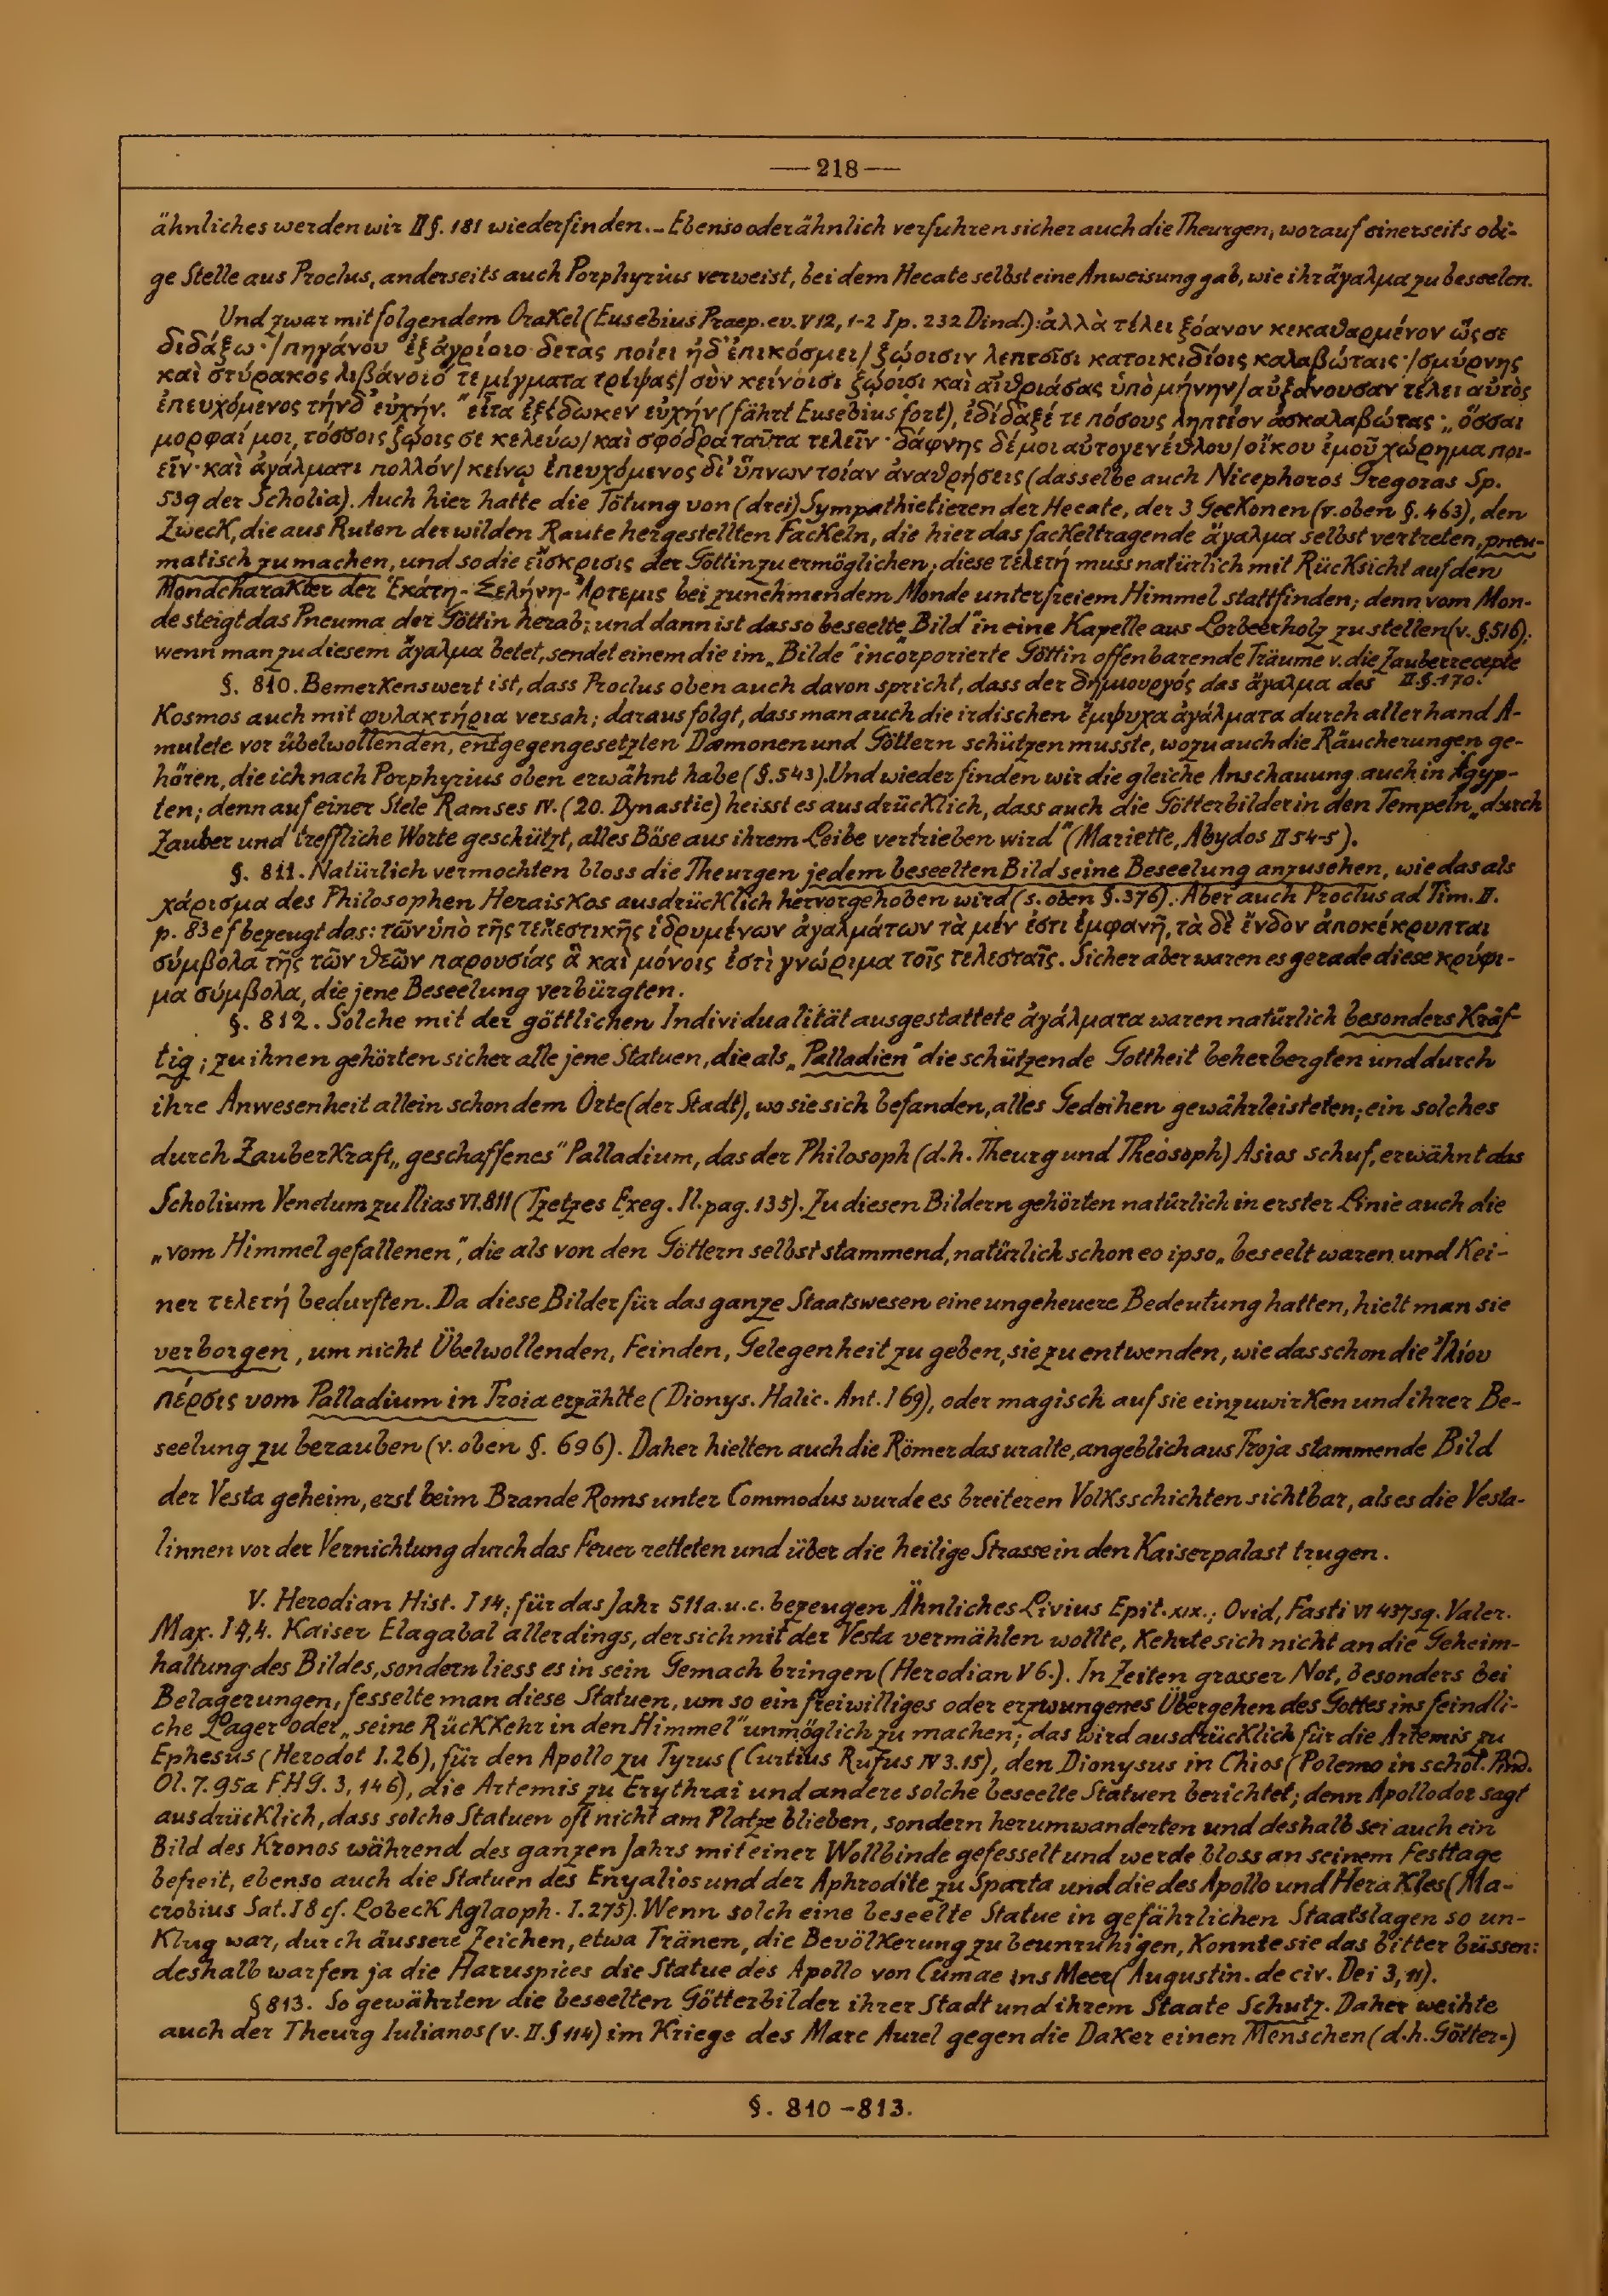 — 218 —
ähnliches werden wir II §. 181 wiederfinden. – Ebenso oder ähnlich verfuhren sicher auch die Theurgen, worauf einerseits obi-
ge Stelle aus Proclus, anderseits auch Porphyrius verweist, bei dem Hecate selbst eine Anweisung gab, wie ihr ἄγαλμα zu beseelen.
Und zwar mit folgendem Orakel (Eusebius Praep. ev. V 12, 1-2 I p. 232 Dind.): ἀλλὰ τέλει ξόανον κεκαθαρμένον ὥς σε
διδάξω · / πηγάνου ἐξ ἀγρίοιο δετὰς ποίει ἠδ' ἐπικόσμει / ζώοισιν λεπτοῖσι κατοικιδίοις καλαβώταις · / σμύρνης
καὶ στύρακος λιβάνοιό τε μίγματα τρίψας / σὺν κείνοισι ζώοισι καὶ αἰθριάσας ὑπὸ μήνην / αὐξάνουσαν τέλει αὐτὸς
ἐπευχόμενος τήνδ' εὐχήν. " εἶτα ἐξέδωκεν εὐχήν (fährt Eusebius fort), ἐδίδαξέ τε πόσους ληπτέον ἀσκαλαβώτας : „ ὅσσαι
μορφαί μοι, τόσσοις ζώοις σε κελεύω / καὶ σφόδρα ταῦτα τελεῖν · δάφνης δέ μοι αὐτογενέθλου / οἴκου ἐμοῦ χώρημα ποι-
εῖν · καὶ ἀγάλματι πολλόν / κείνῳ ἐπευχόμενος δι' ὕπνων τοίαν ἀναθρήσεις (dasselbe auch Nicephoros Gregoras Sp.
539 der Scholia). Auch hier hatte die Tötung von (drei) Sympathietieren der Hecate, der 3 Geckonen (v. oben §. 463), den
Zweck, die aus Ruten der wilden Raute hergestellten Fackeln, die hier das fackeltragende ἄγαλμα selbst vertreten, pneu-
matisch zu machen, und so die εἴσκρισις der Göttin zu ermöglichen; diese τελετή muss natürlich mit Rücksicht auf den
Mondcharakter der Ἑκάτη - Σελήνη - Ἄρτεμις bei zunehmendem Monde unter freiem Himmel stattfinden; denn vom Mon-
de steigt das Pneuma der Göttin herab; und dann ist das so beseelte „Bild" in eine Kapelle aus Lorbeerholz zu stellen (v. §. 516);
wenn man zu diesem ἄγαλμα betet, sendet einem die im „Bilde" incorporierte Göttin offenbarende Träume v. die Zauberrecepte
§. 810. Bemerkenswert ist, dass Proclus oben auch davon spricht, dass der δημιουργός das ἄγαλμα des II §. 170.
Kosmos auch mit φυλακτήρια versah; daraus folgt, dass man auch die irdischen ἔμψυχα ἀγάλματα durch allerhand A-
mulete vor übelwollenden, entgegengesetzten Dæmonen und Göttern schützen musste, wozu auch die Räucherungen ge-
hören, die ich nach Porphyrius oben erwähnt habe (§. 543). Und wieder finden wir die gleiche Anschauung auch in Ägyp-
ten; denn auf einer Stele Ramses IV. (20. Dynastie) heisst es ausdrücklich, dass auch die Götterbilder in den Tempeln „durch
Zauber und treffliche Worte geschützt, alles Böse aus ihrem Leibe vertrieben wird" (Mariette, Abydos II 54-5).
§. 811. Natürlich vermochten bloss die Theurgen jedem beseelten Bild seine Beseelung anzusehen, wie das als
χάρισμα des Philosophen Heraiskos ausdrücklich hervorgehoben wird (s. oben §. 376). Aber auch Proclus ad Tim. II.
p. 83 e f bezeugt das: τῶν ὑπὸ τῆς τελεστικῆς ἱδρυμένων ἀγαλμάτων τὰ μέν ἐστι ἐμφανῆ, τὰ δὲ ἔνδον ἀποκέκρυπται
σύμβολα τῆς τῶν θεῶν παρουσίας ἃ καὶ μόνοις ἐστὶ γνώριμα τοῖς τελεσταῖς. Sicher aber waren es gerade diese κρύφι-
μα σύμβολα, die jene Beseelung verbürgten.
§. 812. Solche mit der göttlichen Individualität ausgestattete ἀγάλματα waren natürlich besonders kräf-
tig; zu ihnen gehörten sicher alle jene Statuen, die als „Palladien" die schützende Gottheit beherbergten und durch
ihre Anwesenheit allein schon dem Orte (der Stadt), wo sie sich befanden, alles Gedeihen gewährleisteten; ein solches
durch Zauberkraft „ geschaffenes" Palladium, das der Philosoph (d.h. Theurg und Theosoph) Asios schuf, erwähnt das
Scholium Venetum zu Ilias VI. 811 (Tzetzes Exeg. Il. pag. 135). Zu diesen Bildern gehörten natürlich in erster Linie auch die
„vom Himmel gefallenen", die als von den Göttern selbst stammend, natürlich schon eo ipso „ beseelt waren und kei-
ner τελετή bedurften. Da diese Bilder für das ganze Staatswesen eine ungeheuere Bedeutung hatten, hielt man sie
verborgen, um nicht Übelwollenden, Feinden, Gelegenheit zu geben, sie zu entwenden, wie das schon die Ἰλίου
πέρσις vom Palladium in Troia erzählte (Dionys. Halic. Ant. I 69), oder magisch auf sie einzuwirken und ihrer Be-
seelung zu berauben (v. oben §. 696). Daher hielten auch die Römer das uralte, angeblich aus Troja stammende Bild
der Vesta geheim, erst beim Brande Roms unter Commodus wurde es breiteren Volksschichten sichtbar, als es die Vesta-
linnen vor der Vernichtung durch das Feuer retteten und über die heilige Strasse in den Kaiserpalast trugen.
V. Herodian Hist. I 14; für das Jahr 511 a.u.c. bezeugen Ähnliches Livius Epit. XIX.; Ovid, Fasti VI 437 sq. Valer.
Max. I 4,4. Kaiser Elagabal allerdings, der sich mit der Vesta vermählen wollte, kehrte sich nicht an die Geheim-
haltung des Bildes, sondern liess es in sein Gemach bringen (Herodian V 6.). In Zeiten grosser Not, besonders bei
Belagerungen, fesselte man diese Statuen, um so ein freiwilliges oder erzwungenes Übergehen des Gottes ins feindli-
che Lager oder „ seine Rückkehr in den Himmel" unmöglich zu machen; das wird ausdrücklich für die Artemis zu
Ephesus (Herodot I. 26), für den Apollo zu Tyrus (Curtius Rufus IV 3.15), den Dionysus in Chios (Polemo in schol. Pind.
Ol. 7. 95a FHG. 3, 146), die Artemis zu Erythrai und andere solche beseelte Statuen berichtet; denn Apollodor sagt
ausdrücklich, dass solche Statuen oft nicht am Platze blieben, sondern herumwanderten und deshalb sei auch ein
Bild des Kronos während des ganzen Jahrs mit einer Wollbinde gefesselt und werde bloss an seinem Festtage
befreit, ebenso auch die Statuen des Enyalios und der Aphrodite zu Sparta und die des Apollo und Herakles (Ma-
crobius Sat. I 8 cf. Lobeck Aglaoph. I. 275). Wenn solch eine beseelte Statue in gefährlichen Staatslagen so un-
klug war, durch äussere Zeichen, etwa Tränen, die Bevölkerung zu beunruhigen, konnte sie das bitter büssen:
deshalb warfen ja die Haruspices die Statue des Apollo von Cumae ins Meer (Augustin. de civ. Dei 3, 11).
§ 813. So gewährten die beseelten Götterbilder ihrer Stadt und ihrem Staate Schutz. Daher weihte
auch der Theurg Iulianos (v. II. § 114) im Kriege des Marc Aurel gegen die Daker einen Menschen (d.h. Götter-)
§. 810 – 813.